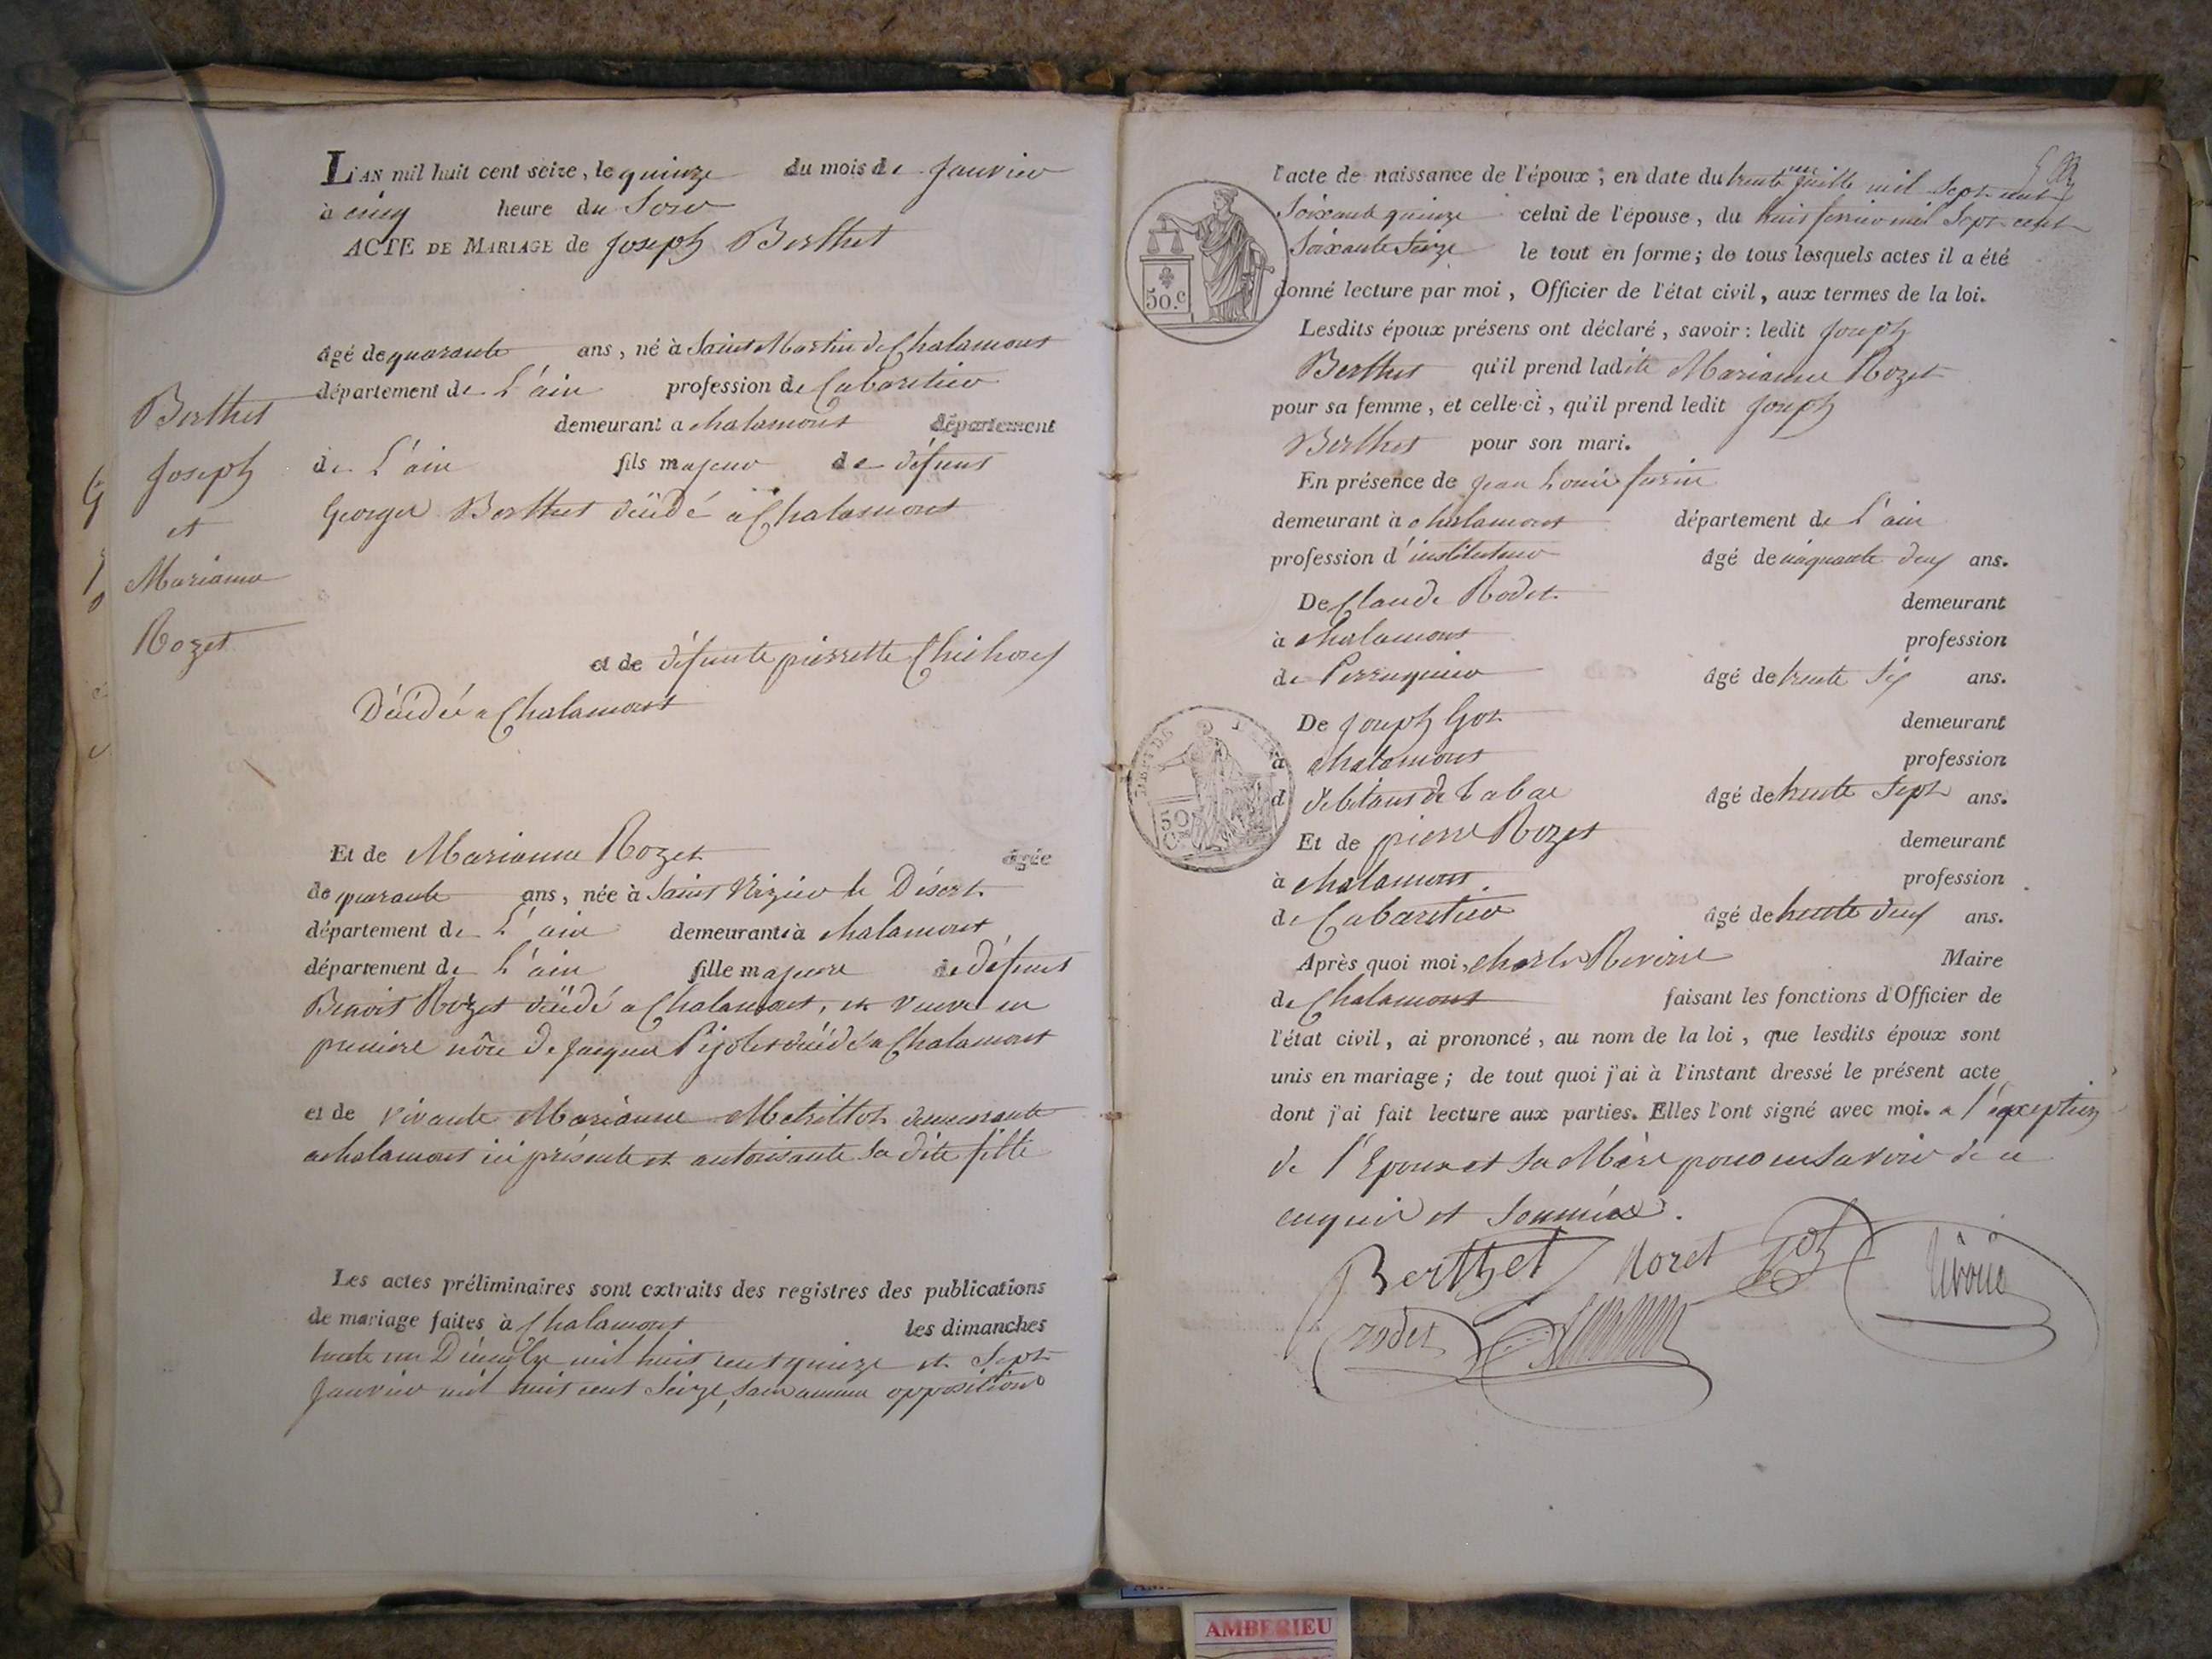 L'AN mil huit cent seize, le quinze du mois de Janvier
à cinq heure du Soir
ACTE DE MARIAGE de Joseph Berthet
âgé de quarante ans, né à Saint Martin de Chalamont
département de L'ain profession de Cabaretier
demeurant a chalamont département
de L'ain fils majeur de défunt
George Berthet décédé a Chalamont
et de défunte pierrette
Décédée a Chalamont
Berthet
Joseph
et
Marianne
Rozet
Et de Marianne Rozet âgée
de quarante ans, née à Saint Nizier le Désert
département de L'ain demeurante à chalamont
département de L'ain fille majeure de défunt
Benoit Rozet décédé a Chalamont, et veuve en
premiere nôce de Jacque décédé a Chalamont
et de vivante Marianne demeurante
a chalamont ici présente et autorisante sa dite fille
Les actes préliminaires sont extraits des registres des publications
de mariage faites à Chalamont les dimanches
trente un Décembre mil huit cent quinze et Sept
Janvier mil huit cent Seize, sans aucune opposition
l'acte de naissance de l'époux ; en date du trente un juillet mil Sept cent
Soixante quinze celui de l'épouse, du huit fevrier mil Sept cent
Soixante Seize le tout en forme ; de tous lesquels actes il a été
donné lecture par moi, Officier de l'état civil, aux termes de la loi.
50.c
Lesdits époux présens ont déclaré, savoir : ledit Joseph
Berthet qu'il prend ladite Marianne Rozet
pour sa femme, et celle-ci, qu'il prend ledit Joseph
Berthet pour son mari.
En présence de Jean Louis
demeurant à chalamont département de L'ain
profession d'instituteur âgé de cinquante deux ans.
De Claude Rodet demeurant
à chalamont profession
de Perruquier âgé de trente Six ans.
De Joseph Goz demeurant
à chalamont profession
d debitant de tabac âgé de trente Sept ans.
50
Et de pierre Rozet demeurant
à chalamont profession
de Cabaretier âgé de trente deux ans.
Après quoi moi, charles Rivoire Maire
de Chalamont faisant les fonctions d'Officier de
l'état civil, ai prononcé, au nom de la loi, que lesdits époux sont
unis en mariage ; de tout quoi j'ai à l'instant dressé le présent acte
dont j'ai fait lecture aux parties. Elles l'ont signé avec moi. a l'exception
de l'Epouse et Sa Mère pour ne savoir de ce
enquis et Sommées.
Berthet Roret goz Rivoire
rodet
AMBERIEU